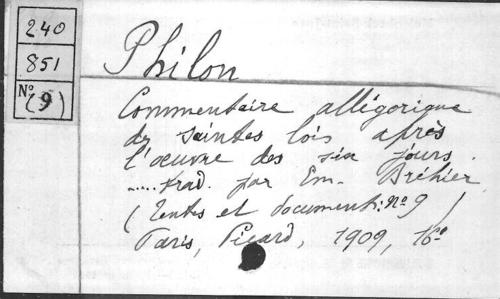 240
851
N° (9)
Philon
Commentaire allégorique
des saintes lois après
l'œuvre des six jours.
..... trad. par Em. Bréhier
(Textes et document: n° 9)
Paris, Picard, 1909, 16°